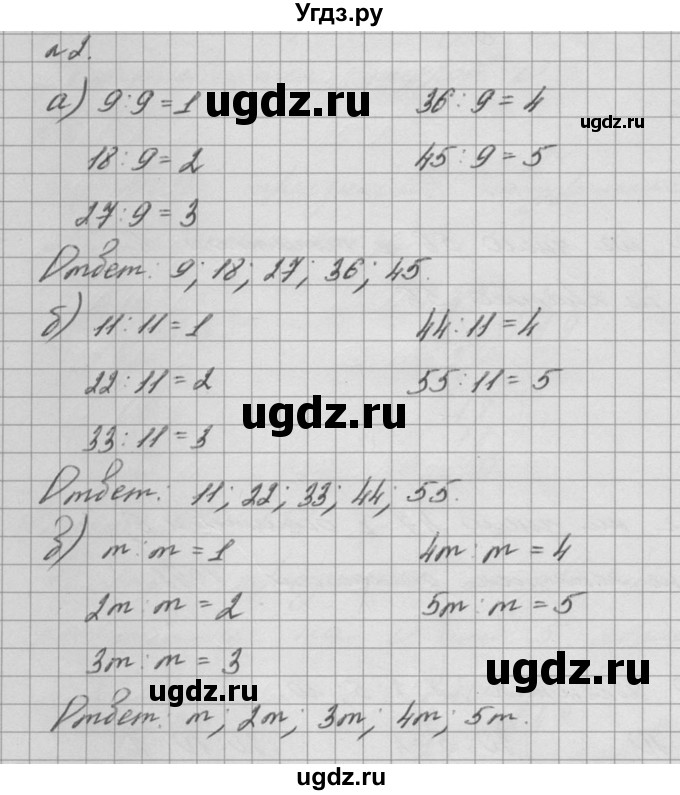 Угдз.ру
№2.
а) 9:9=1 36:9=4
ugdz.ru
ugdz.ru
18:9=2 45:9=5
27:9=3
Ответ: 9; 18; 27; 36; 45.
б) 11:11=1 44:11=4
22:11=2 55:11=5
ugdz.ru
33:11=3
Ответ: 11; 22; 33; 44; 55.
в) m:m=1 4m:m=4
2m:m=2 5m:m=5
3m:m=3
ugdz.ru
ugdz.ru
Ответ: m; 2m; 3m; 4m; 5m.
ugdz.ru